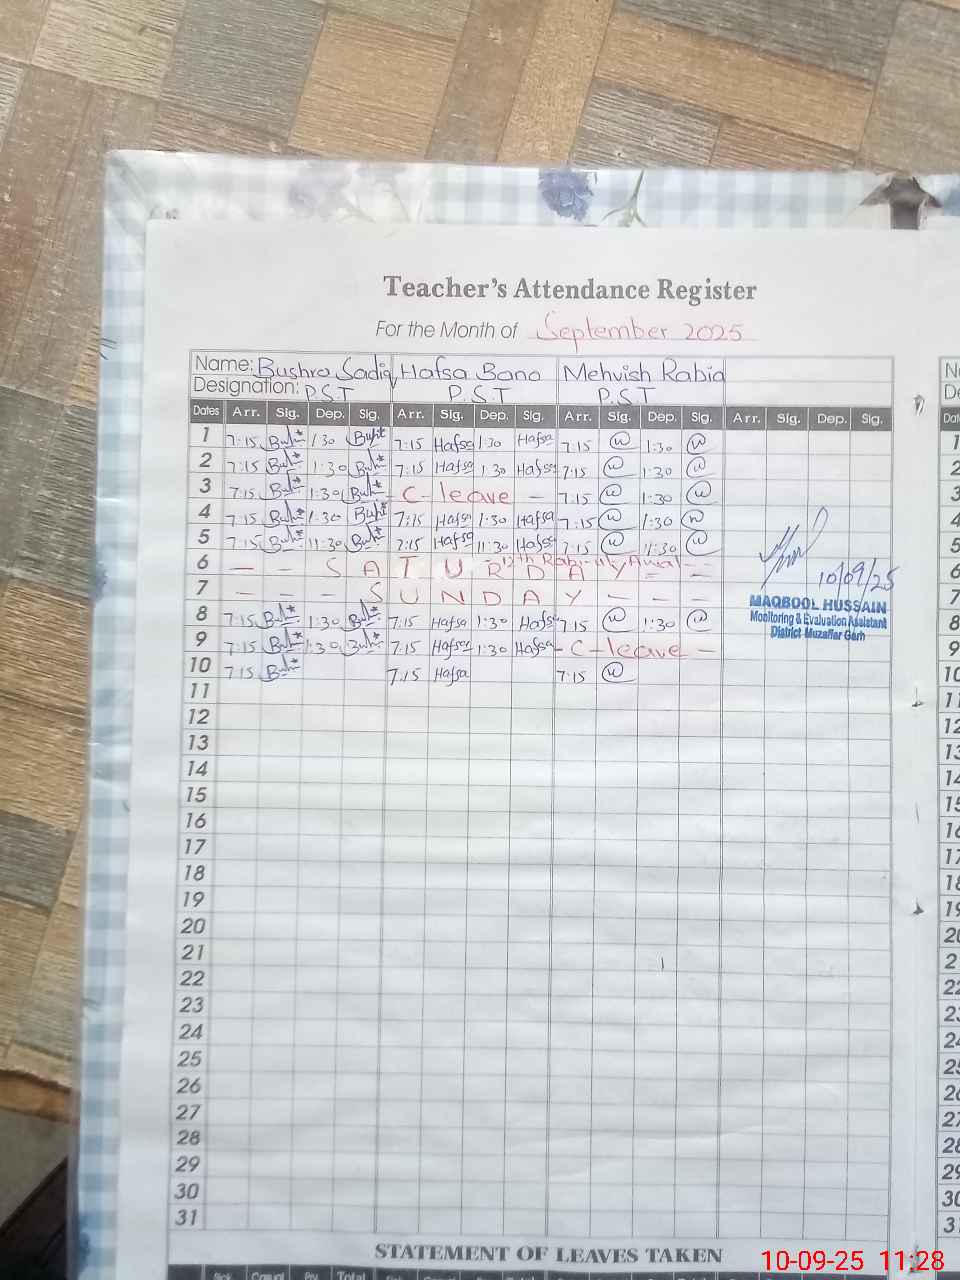 Teacher's Attendance Register
For the Month of September 2025
Name: Bushra Sadiq Hafsa Bano Mehvish Rabia
Designation: P.S.T P.S.T P.S.T
Dates Arr. Sig. Dep. Sig. Arr. Sig. Dep. Sig. Arr. Sig. Dep. Sig. Arr. Sig. Dep. Sig.
1 7:15 1:30 7:15 Hafsa 1:30 Hafsa 7:15 1:30
2 7:15 1:30 7:15 Hafsa 1:30 Hafsa 7:15 1:30
3 7:15 1:30 - C- leave - 7:15 1:30
4 7:15 1:30 7:15 Hafsa 1:30 Hafsa 7:15 1:30
5 7:15 11:30 7:15 Hafsa 11:30 Hafsa 7:15 1:30
6 - - S A T U R D A Y - -
12th Rabi-ul-Awal
7 - - - S U N D A Y - - -
8 7:15 1:30 7:15 Hafsa 1:30 Hafsa 7:15 1:30
9 7:15 1:30 7:15 Hafsa 1:30 Hafsa - C-leave -
10 7:15 7:15 Hafsa 7:15
10/09/25
MAQBOOL HUSSAIN
Monitoring & Evaluation Assistant
District Muzaffar Garh
11
12
13
14
15
16
17
18
19
20
21
22
23
24
25
26
27
28
29
30
31
STATEMENT OF LEAVES TAKEN
10-09-25 11:28